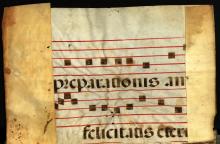 preparationis an
felicitatis etere